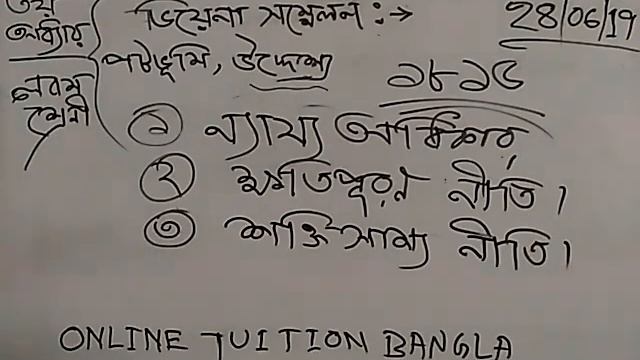 ৩য়
অধ্যায়
নবম
শ্রেণী
ভিয়েনা সম্মেলন :→
28/06/19
পটভূমি, উদ্দেশ্য
১৮১৫
① ন্যায্য অধিকার,
② ক্ষতিপূরণ নীতি।
③ শক্তিসাম্য নীতি।
ONLINE TUITION BANGLA